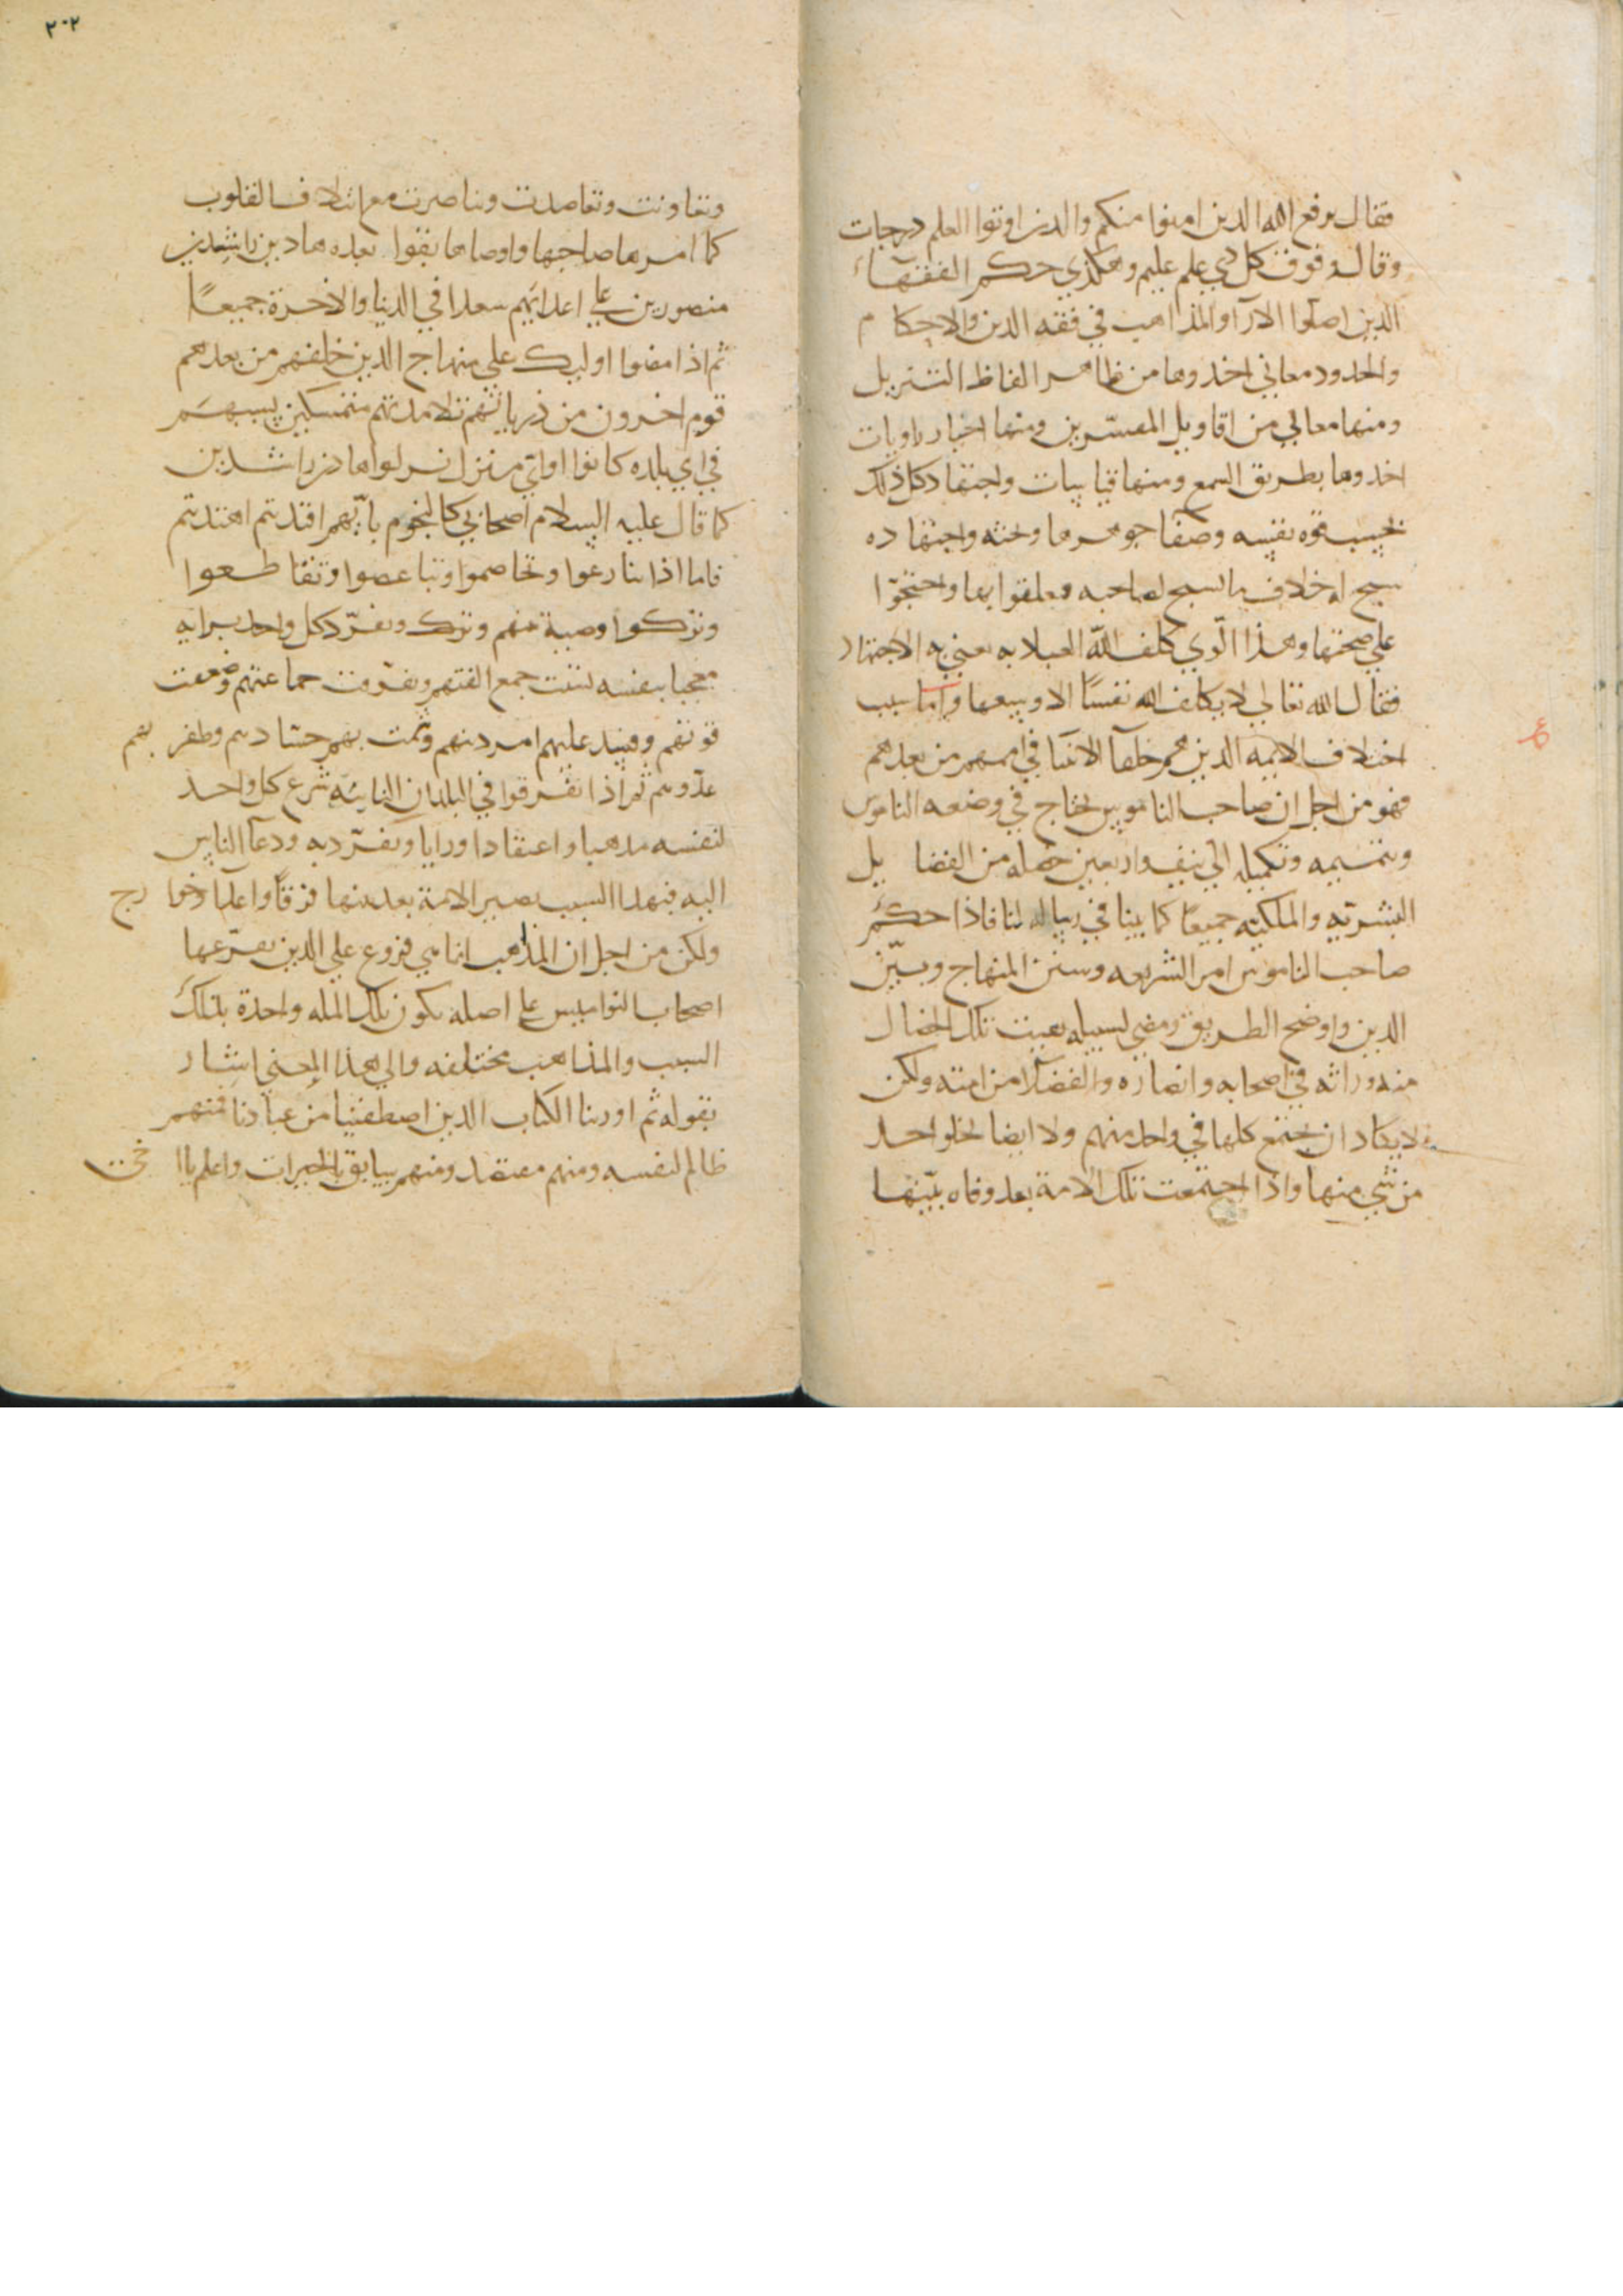 فقال يرفع الله الذين امنوا منكم والذين اوتوا العلم درجات
وقال وفوق كل ذي علم عليم وهكذي حكم الفقهاء
الذين اصلوا الارآ والمذاهب في فقه الدين والاحكام
والحدود معاني اخذوها من ظاهر الفاظ التنزيل
ومنها معاني من اقاويل المفسّرين ومنها اخبار راويات
اخذوها بطريق السمع ومنها قياسات واجتهاد كل ذلك
بحسب قوه نفسه وصفا جوهرها وبحثه واجتهاده
سنح له خلاف ما سنح لصاحبه فعلقوا بها واحتجّوا
علي صحتها وهذا الذي كلف الله العباد به يعني به الاجتهاد
فقال الله تعالي لا يكلف الله نفسًا الا وسعها واما سبب
اختلاف الايمه الذين هم خلفآ الانبيا في اممهم من بعدهم
فهو من اجل ان صاحب الناموس يحتاج في وضعه الناموس
وتتميمه وتكميله الي نيف واربعين خصله من الفضايل
البشريّه والملكيّه جميعًا كما بينا في رساله لنا فاذا احكم
صاحب الناموس امر الشريعه وسنن المنهاج وبيّن
الدين واوضح الطريق ومضي لسبيله بقيت تلك الخصال
منه وراثه في اصحابه وانصاره والفضلآ من امته ولكن
لا يكاد ان يجتمع كلها في واحد منهم ولا ايضا يخلوا احد
من شي منها واذا اجتمعت تلك الامة بعد وفاه نبيّها
٢٠٢
وتعاونت وتعاضدت وتناصرت مع ائتلاف القلوب
كما امرها صاحبها واوصاها بقوا بعده هادين راشدين
منصورين علي اعدايهم سعدا في الدنيا والاخرة جميعًا
ثم اذا مضوا اوليك علي منهاج الذين خلفهم من بعدهم
قوم اخرون من ذرياتهم تلامذتهم متمسكين بسبهم
في اي بلده كانوا او اي منزل نزلوا هادين راشدين
كما قال عليه السلام اصحابي كالنجوم بايّهم اقتديتم اهتديتم
فاما اذا تنازعوا وتخاصموا وتباغضوا وتقاطعوا
وتركوا وصية منهم وترك وتفرّد كل واحد برايه
معجبا بنفسه تشتت جمع الفتهم وتفرّقت جماعتهم وضعفت
قوتهم وفسد عليهم امر دينهم وشمت بهم حسادهم وظفر بهم
عدّوهم ثم اذا تفرقوا في البلدان النايّه شرع كل واحد
لنفسه مذهبا واعتقادا ورايا وتفرّد به ودعا الناس
اليه فبهذا السبب يصير الامة بعد نبيها فرقًا واعلم اخوا رج
ولكن من اجل ان المذهب انما هي فروع علي الدين يفرّعها
اصحاب النواميس علي اصله يكون تلك المله واحدة بتلك
السبب والمذاهب مختلفه والي هذا المعني اشار
بقوله ثم اورثنا الكتاب الذين اصطفينا من عبادنا فمنهم
ظالم لنفسه ومنهم مقتصد ومنهم سابق بالخيرات واعلم يا ا